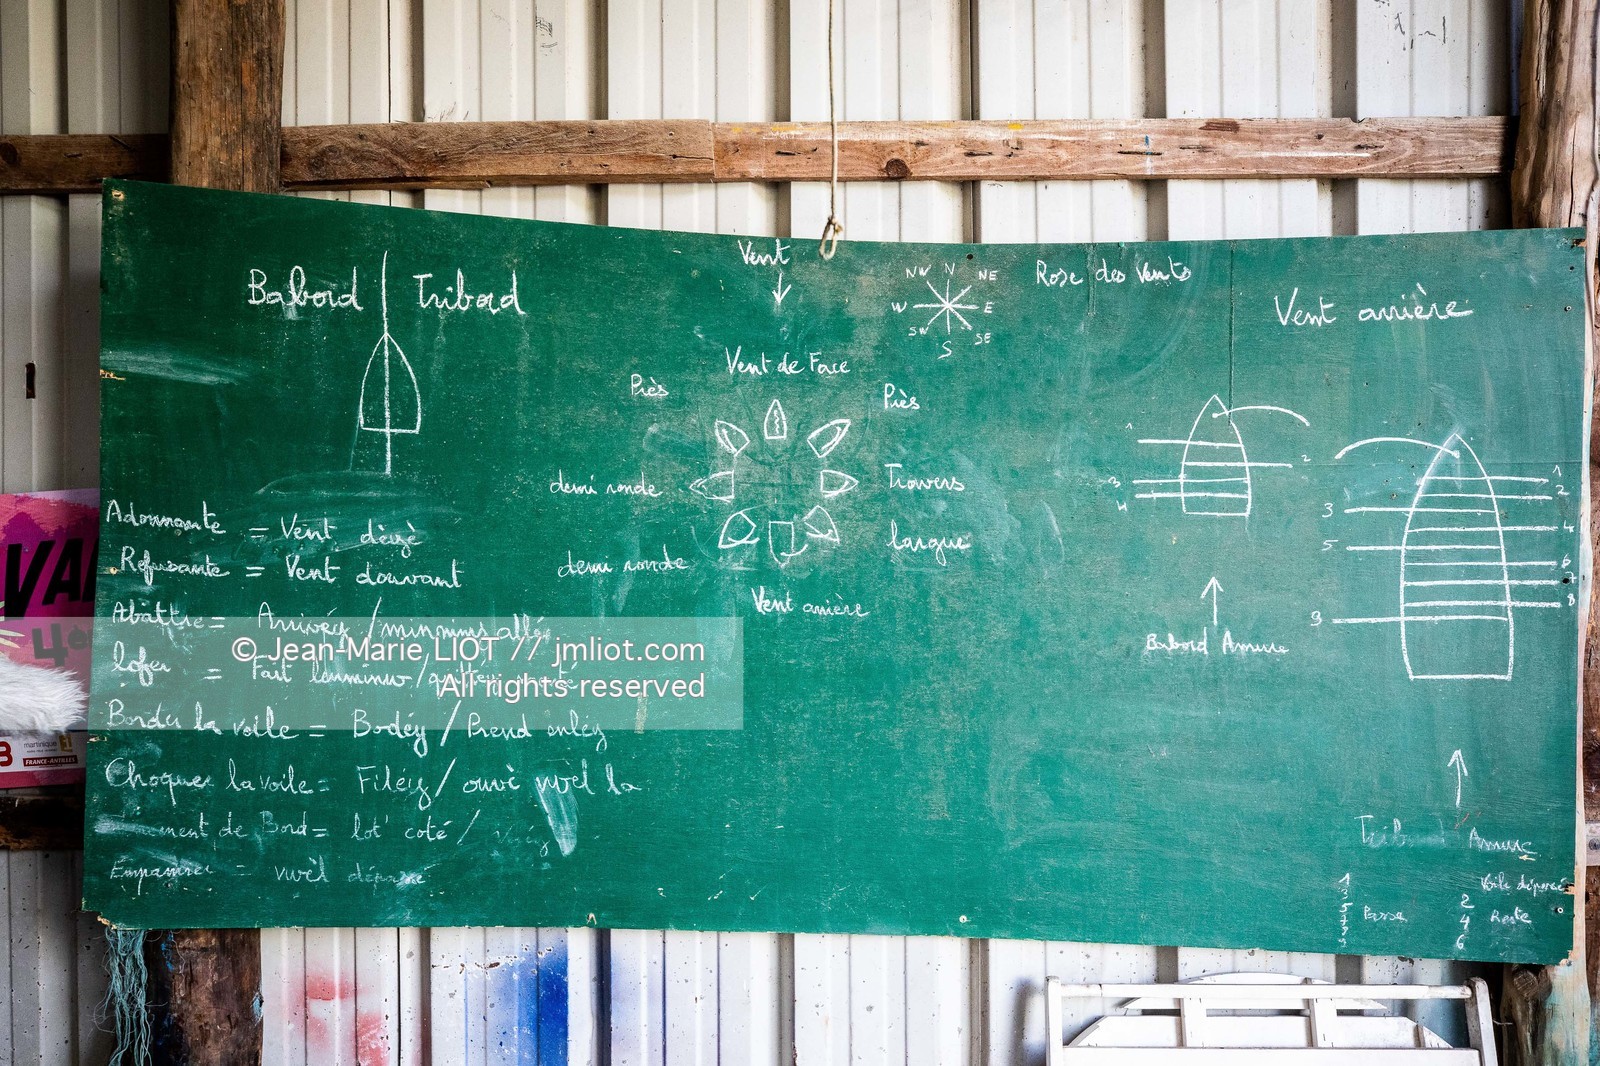 Babord Tribord
Vent
NW N NE
W E
SW S SE
Rose des Vents
Vent arrière
Vent de Face
Près
Près
demi ronde
Travers
demi ronde
largue
Vent arrière
Adonnante = Vent dèyè
Refusante = Vent douvant
Abattre = Arrivéy /
lofer = Fait
Border la voile = Bodéy / Prend
Choquer la voile = Filéy / ouvè vwèl la
de Bord = lot' coté /
Empanner = vwèl
1
2
3
4
Babord Amure
1
2
3
4
5
6
7
8
9
Amure
Voile
1
3
5 Passe
7
9
2
4 Reste
6
VA
4
martinique
FRANCE-ANTILLES
© Jean-Marie LIOT // jmliot.com
All rights reserved